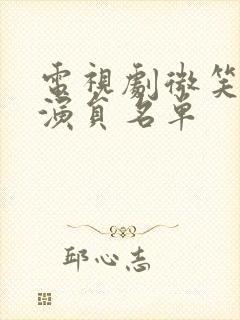 電視劇微笑
演員名單
邱心志